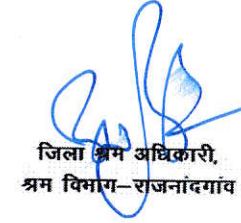 जिला श्रम अधिकारी,
श्रम विभाग–राजनांदगांव